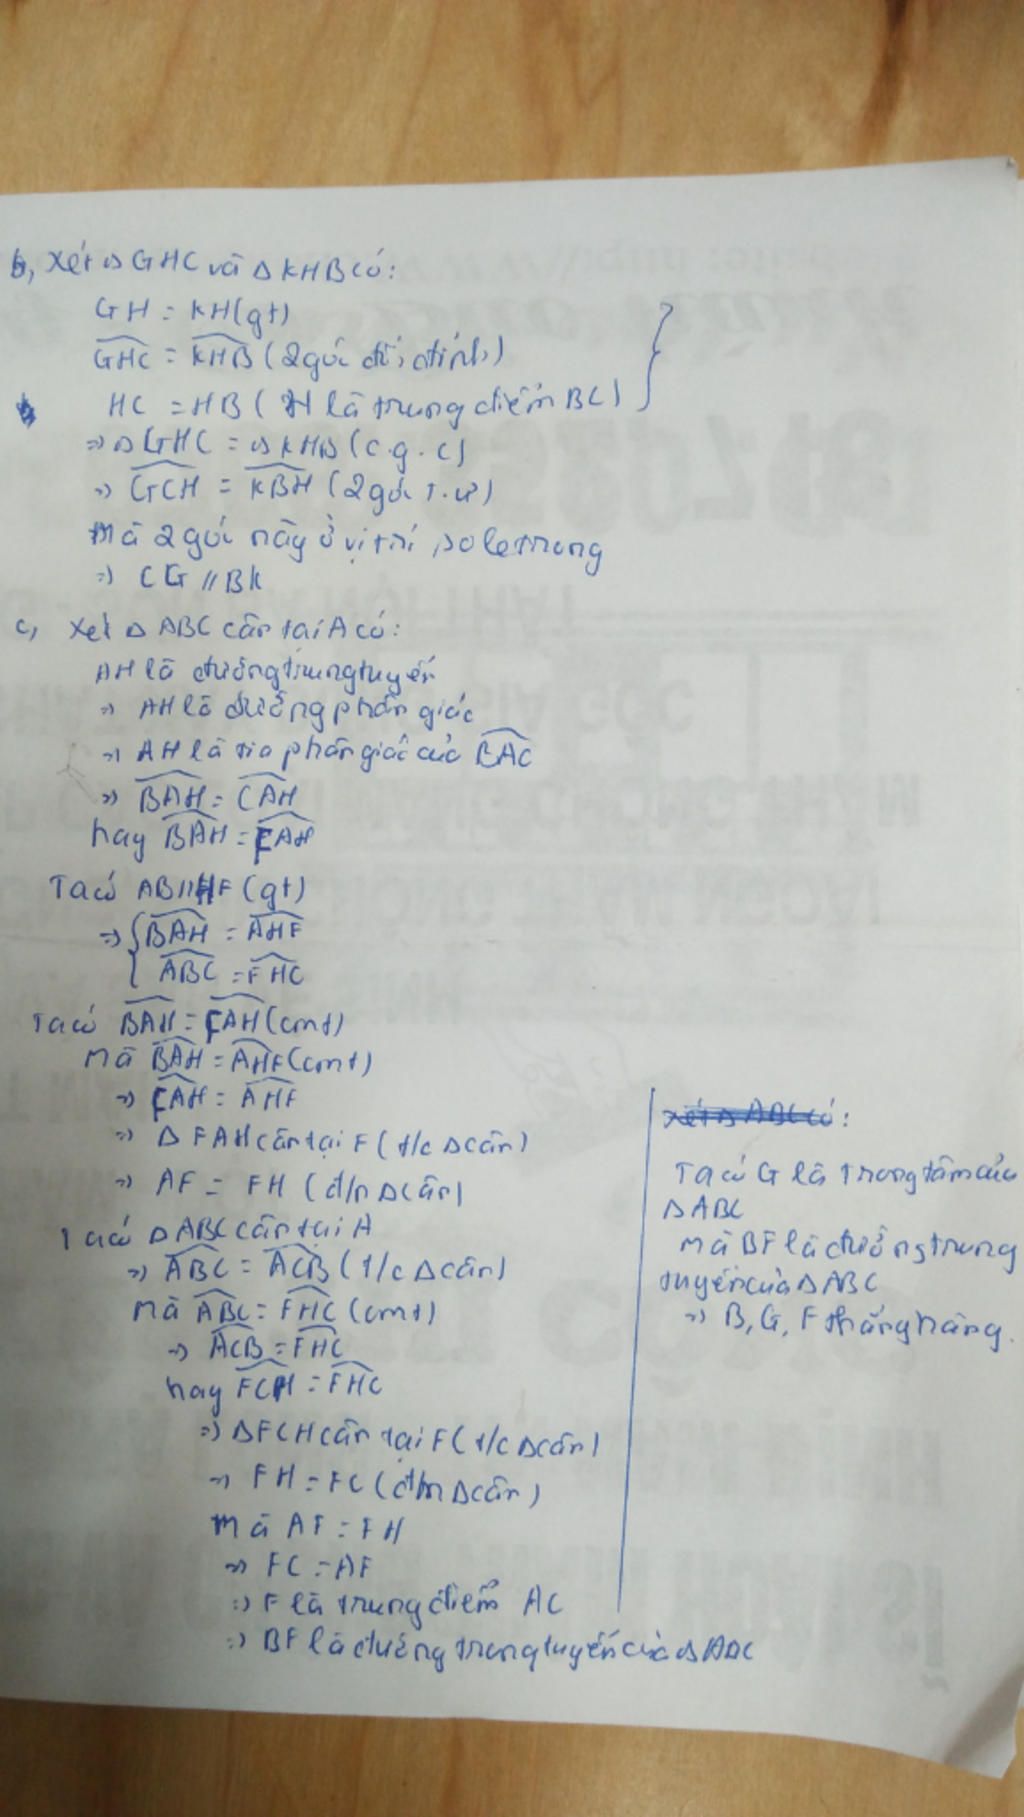 b, Xét △GHC và △KHB có:
GH = KH (gt)
GHC = KHB (2 góc đối đỉnh)
HC = HB (H là trung điểm BC)
=> △GHC = △KHB (c.g.c)
=> GCH = KBH (2 góc t.ư)
Mà 2 góc này ở vị trí so le trong
=> CG // BK
c, Xét △ABC cân tại A có:
AH là đường trung tuyến
=> AH là đường phân giác
=> AH là tia phân giác của BAC
=> BAH = CAH
hay BAH = FAH
Ta có AB // HF (gt)
=> { BAH = AHF
ABC = FHC
Ta có BAH = FAH (cmt)
mà BAH = AHF (cmt)
=> FAH = AHF
=> △FAH cân tại F (t/c △cân)
=> AF = FH (đ/n △cân)
Ta có △ABC cân tại A
=> ABC = ACB (t/c △cân)
mà ABC = FHC (cmt)
=> ACB = FHC
hay FCH = FHC
=> △FCH cân tại F (t/c △cân)
=> FH = FC (đ/n △cân)
mà AF = FH
=> FC = AF
=> F là trung điểm AC
=> BF là đường trung tuyến của △ABC
Xét △ABC có:
Ta có G là trọng tâm của
△ABC
mà BF là đường trung
tuyến của △ABC
=> B, G, F thẳng hàng.